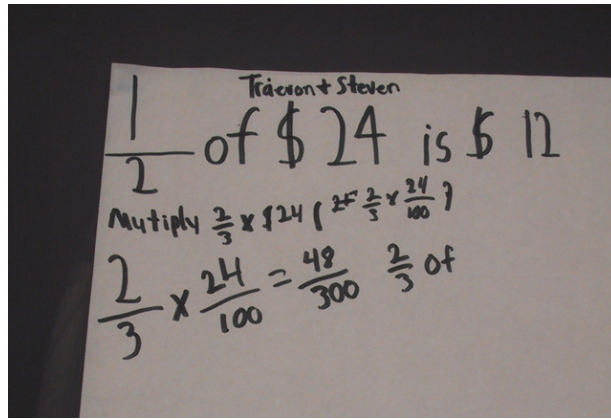 Traevon + Steven
1/2 of $ 24 is $ 12
Mutiply 2/3 x $24 ( 2/3 x 24/100 )
2/3 x 24/100 = 48/300 2/3 of